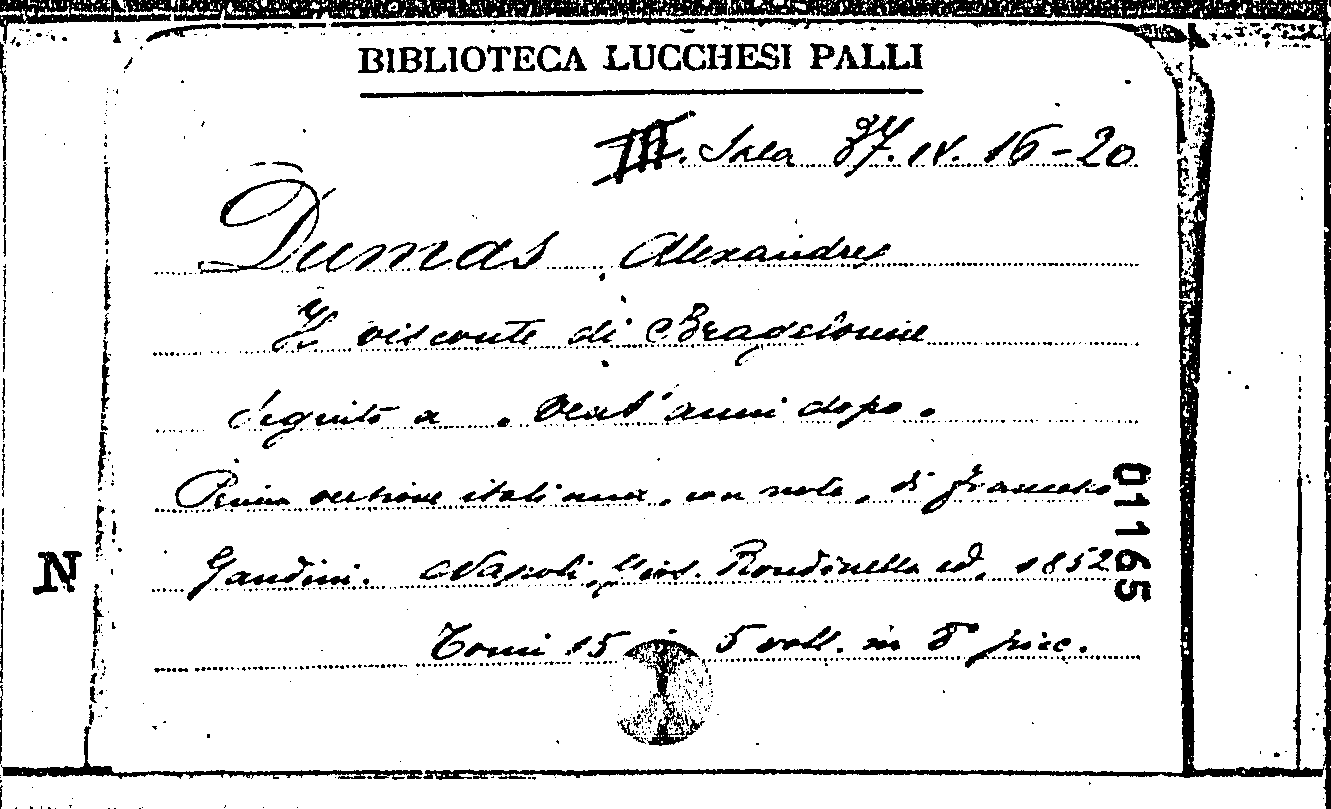 BIBLIOTECA LUCCHESI PALLI
III. Sala 37. IV. 16-20
Dumas, Alexandre
Il visconte di Bragelonne
seguito a "Vent'anni dopo"
Prima versione italiana, con note, di Francesco
Gandini. Napoli, Gius. Rondinella ed. 1852
Tomi 15 in 5 voll. in 8° picc.
N
01165